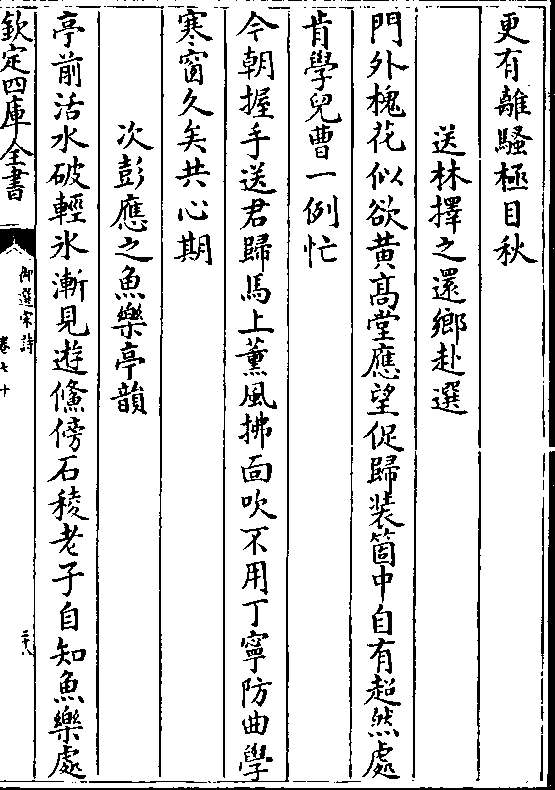 更有離騷極目秋
送林擇之還鄉赴選
門外槐花似欲黄高堂應望促歸装箇中自有超然處
肯學兒曹一例忙
今朝握手送君歸馬上薰風拂面吹不用丁寧防曲學
寒窗久矣共心期
次彭應之魚樂亭韻
亭前活水破輕氷漸見遊鯈傍石稜老子自知魚樂處
欽定四庫全書
御選宋詩
卷七十
三十八